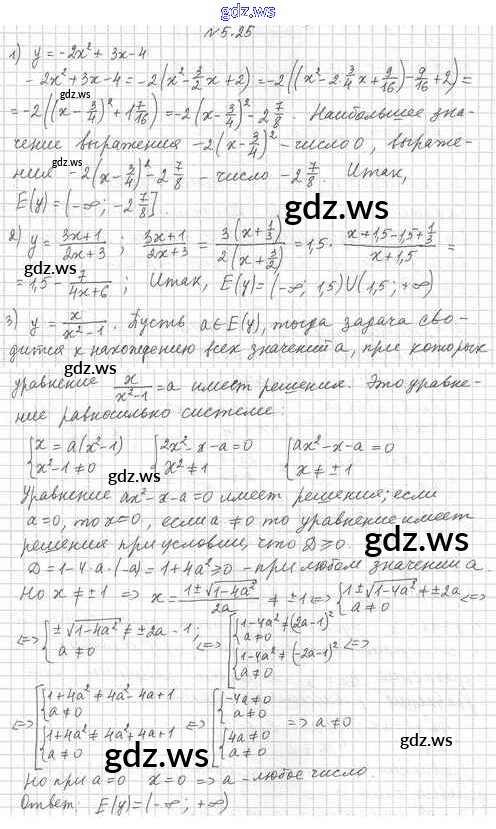 gdz.ws
№5.25
1) y = -2x² + 3x - 4
- 2x² + 3x - 4 = -2(x² - 3/2 x + 2) = -2((x² - 2·3/4 x + 9/16) - 9/16 + 2) =
gdz.ws
= -2((x - 3/4)² + 1 7/16) = -2(x - 3/4)² - 2 7/8. Наибольшее зна-
чение выражения -2(x - 3/4)² - число 0, выраже-
gdz.ws
ния -2(x - 3/4)² - 2 7/8 - число -2 7/8. Итак,
E(y) = (-∞; -2 7/8].
gdz.ws
2) y = (3x+1)/(2x+3) ; (3x+1)/(2x+3) = 3(x + 1/3)/2(x + 3/2) = 1,5 · (x+1,5-1,5+1/3)/(x+1,5) =
gdz.ws
= 1,5 - 7/(4x+6) ; Итак, E(y) = (-∞; 1,5)U(1,5; +∞)
gdz.ws
3) y = x/(x²-1). Пусть a∈E(y), тогда задача сво-
дится к нахождению всех значений a, при которых
gdz.ws
уравнение x/(x²-1) = a имеет решения. Это уравне-
ние равносильно системе:
{x = a(x²-1) {2x²-x-a=0 {ax²-x-a=0
{x²-1≠0 {x²≠1 {x≠±1
gdz.ws
Уравнение ax²-x-a=0 имеет решения; если
a=0, то x=0, если a≠0 то уравнение имеет
решения при условии, что D≥0.
gdz.ws
D=1-4·a·(-a)=1+4a²≥0 - при любом значении a.
Но x≠±1 => x = (1±√(1-4a²))/2a ≠ ±1 <=> {1±√(1-4a²)≠±2a <=>
{a≠0
<=> {±√(1-4a²)≠±2a-1; <=> [{1-4a²≠(2a-1)²
{a≠0 {a≠0
gdz.ws
[{1-4a²≠(-2a-1)² <=>
{a≠0
<=> [{1+4a²≠4a²-4a+1 <=> [{-4a≠0
{a≠0 {a≠0
{1+4a²≠4a²+4a+1 {4a≠0 => a≠0
{a≠0 {a≠0
gdz.ws
gdz.ws
Но при a=0 x=0 => a - любое число.
Ответ: E(y)=(-∞; +∞)
gdz.ws